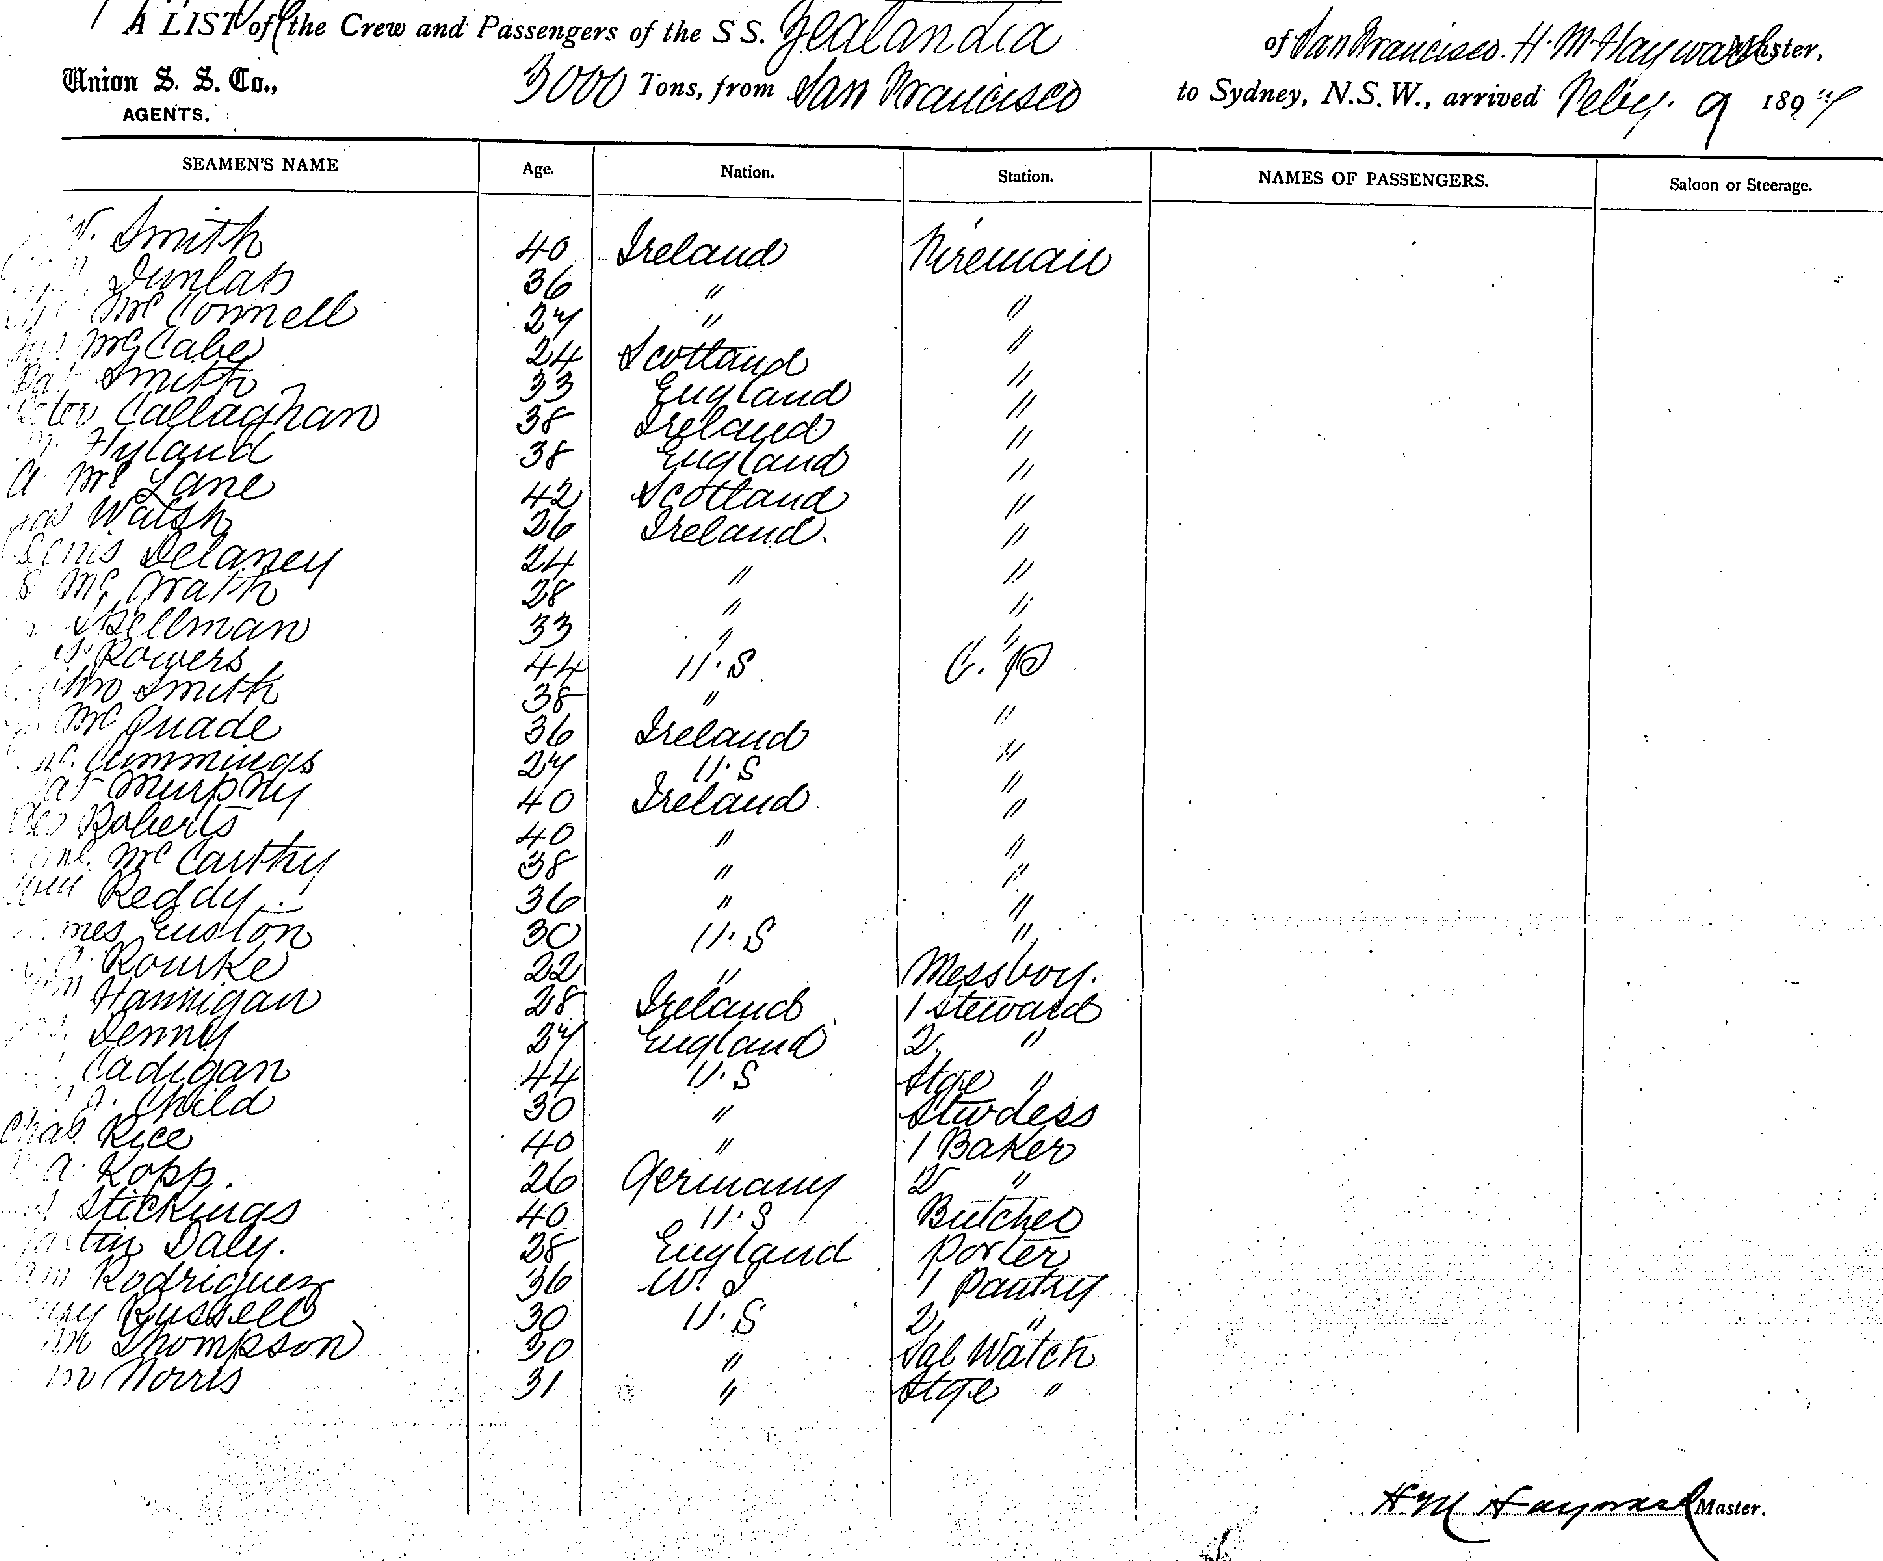 A LIST of the Crew and Passengers of the S S. Zealandia of San Francisco. H. M. Hayward Master,
Union S. S. Co., 3000 Tons, from San Francisco to Sydney, N.S.W., arrived Feby. 9 1897
AGENTS.
SEAMEN'S NAME Age. Nation. Station. NAMES OF PASSENGERS. Saloon or Steerage.
Smith 40 Ireland Fireman
Dunlap 36 " "
McConnell 27 " "
McCabe 24 Scotland "
Pat Smith 33 England "
Callaghan 38 Ireland "
Hyland 38 England "
A McLane 42 Scotland "
Walsh 26 Ireland. "
Denis Delaney 24 " "
McGrath 28 " "
Spellman 33 " "
Powers 44 U.S C. P
John Smith 38 " "
McQuade 36 Ireland "
Cummings 27 U.S "
Pat Murphy 40 Ireland "
Geo Roberts 40 " "
McCarthy 38 " "
Reddy. 36 " "
James Euston 30 U.S "
Rourke 22 " Messboy.
Hannigan 28 Ireland 1 Steward
Denny 27 England 2 "
Cadigan 44 U.S Stge "
Child 30 " Stwdess
Chas. Rice 40 " 1 Baker
A. Kopp. 26 Germany 2 "
Stickings 40 U.S Butcher
Martin Daly. 28 England Porter
Rodriguez 36 W. I 1 Pantry
Russell 30 U.S 2 "
Thompson 30 " Sal Watch
Norris 31 " Stge "
H M Hayward Master.